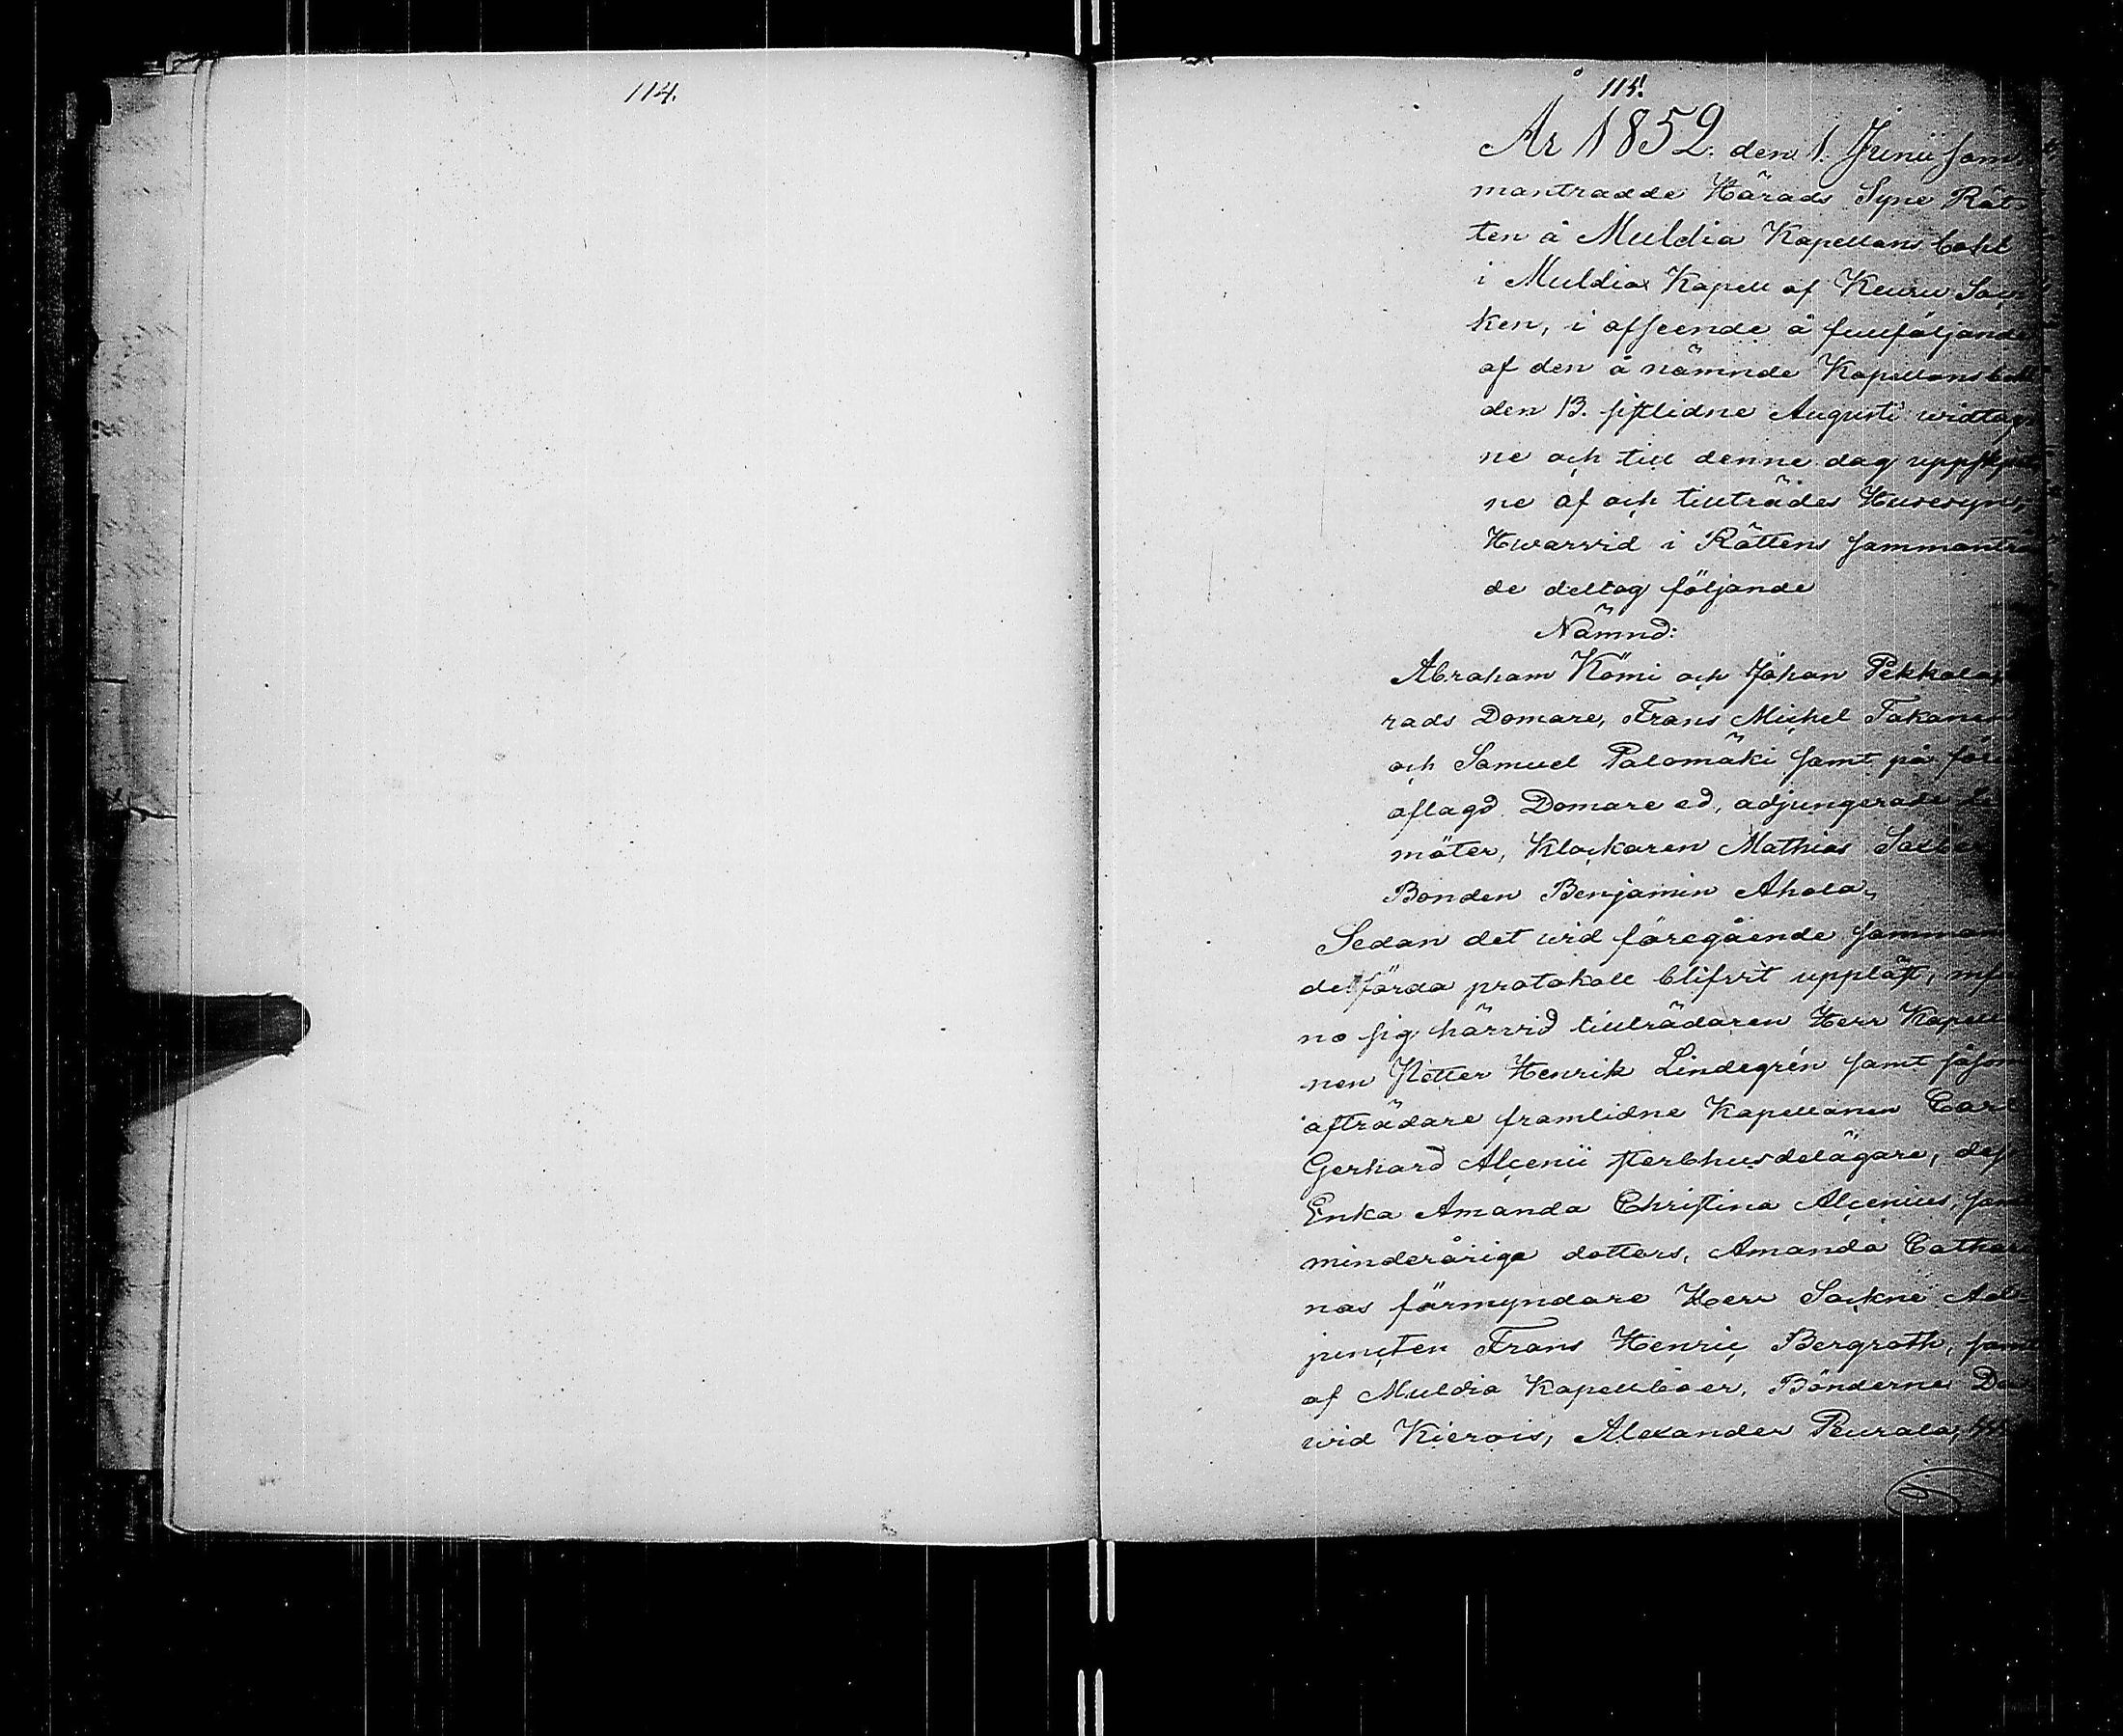 114.
115.
År 1852. den 1. Junii sam-
manträdde Härads Syne Rät-
ten å Muldia Kapellans bohl
i Muldia Kapell af Keuru Sock
ken, i afseende å fullföljande
af den å nämnde Kapellansbohl
den 13. sistlidne Augusti widtag
ne och till denne dag uppskjut
ne af och tillträdes Husesyn,
Hwarvid i Rättens sammanträ
de deltog följande
Nämnd:
Abraham Kömi och Johan Pekkala
rads Domare, Frans Michel Takanen
och Samuel Palomäki samt på för
aflagd Domare ed, adjungerade
möter, Klockaren Mathias
Bonden Benjamin Ahola,
Sedan det wid föregående samman
de förda protokoll blifvit uppläst, infun
no sig härvid tillträdaren Herr Kapell
nen Petter Henrik Lindegrén samt såsom
afträdare framlidne Kapellanen Carl
Gerhard Alcenii sterbhusdelägare, dess
Enka Amanda Christina Alcenius, sam
minderåriga dotters, Amanda Catha
nas förmyndare Herr Sockne Ad-
juncten Frans Henric Bergroth, samt
af Muldia Kapellboer, Bönderne Da
wid Kierois, Alexander Peurala,